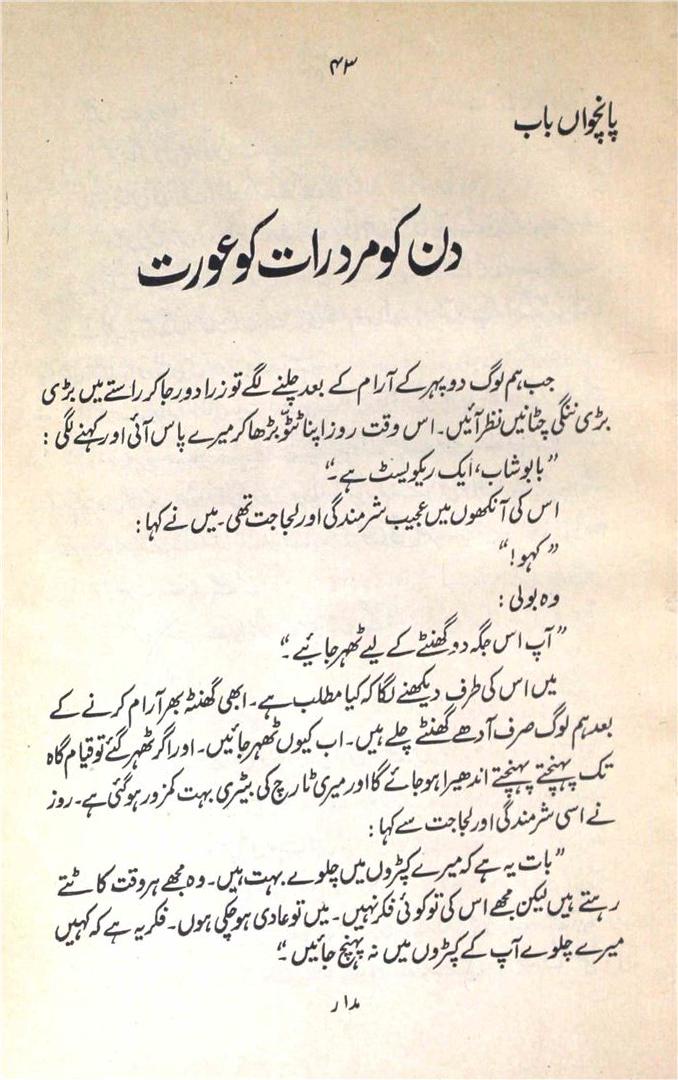 ۴۳
پانچواں باب
دن کو مرد رات کو عورت
جب ہم لوگ دوپہر کے آرام کے بعد چلنے لگے تو زرا دور جا کر راستے میں بڑی
بڑی ننگی چٹانیں نظر آئیں۔ اس وقت روز اپنا ٹٹو بڑھا کر میرے پاس آئی اور کہنے لگی :
”بابو شاب، ایک ریکویسٹ ہے۔“
اس کی آنکھوں میں عجیب شرمندگی اور لجاجت تھی۔ میں نے کہا :
”کہو!“
وہ بولی :
”آپ اس جگہ دو گھنٹے کے لیے ٹھہر جائیے۔“
میں اس کی طرف دیکھنے لگا کہ کیا مطلب ہے۔ ابھی گھنٹہ بھر آرام کرنے کے
بعد ہم لوگ صرف آدھے گھنٹے چلے ہیں۔ اب کیوں ٹھہر جائیں۔ اور اگر ٹھہر گئے تو قیام گاہ
تک پہنچتے پہنچتے اندھیرا ہو جائے گا اور میری ٹارچ کی بیٹری بہت کمزور ہو گئی ہے۔ روز
نے اسی شرمندگی اور لجاجت سے کہا :
”بات یہ ہے کہ میرے کپڑوں میں چلوے بہت ہیں۔ وہ مجھے ہر وقت کاٹتے
رہتے ہیں لیکن مجھے اس کی تو کوئی فکر نہیں۔ میں تو عادی ہو چکی ہوں۔ فکر یہ ہے کہ کہیں
میرے چلوے آپ کے کپڑوں میں نہ پہنچ جائیں۔“
مدار